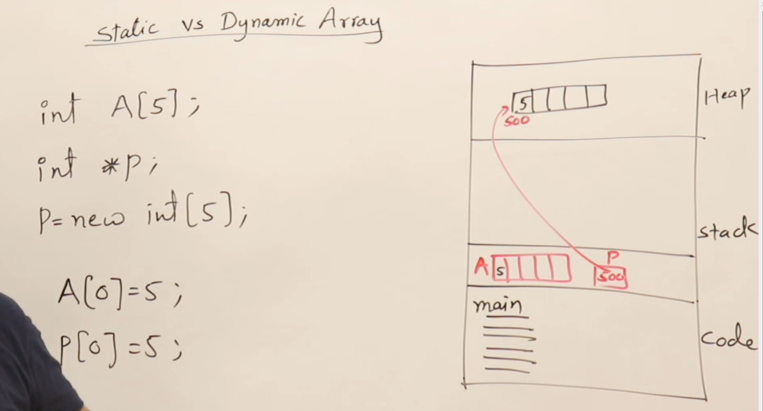 Static vs Dynamic Array
int A[5];
int *p;
p=new int[5];
A[0]=5;
P[0]=5;
5
500
Heap
stack
A
5
P
500
main
code